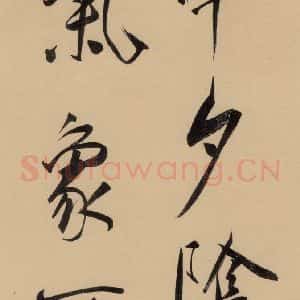 夕陰
氣象
Shufawang.CN